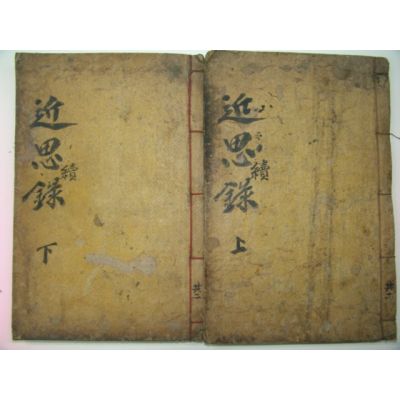 近思續錄
上
共二
近思續錄
下
共二